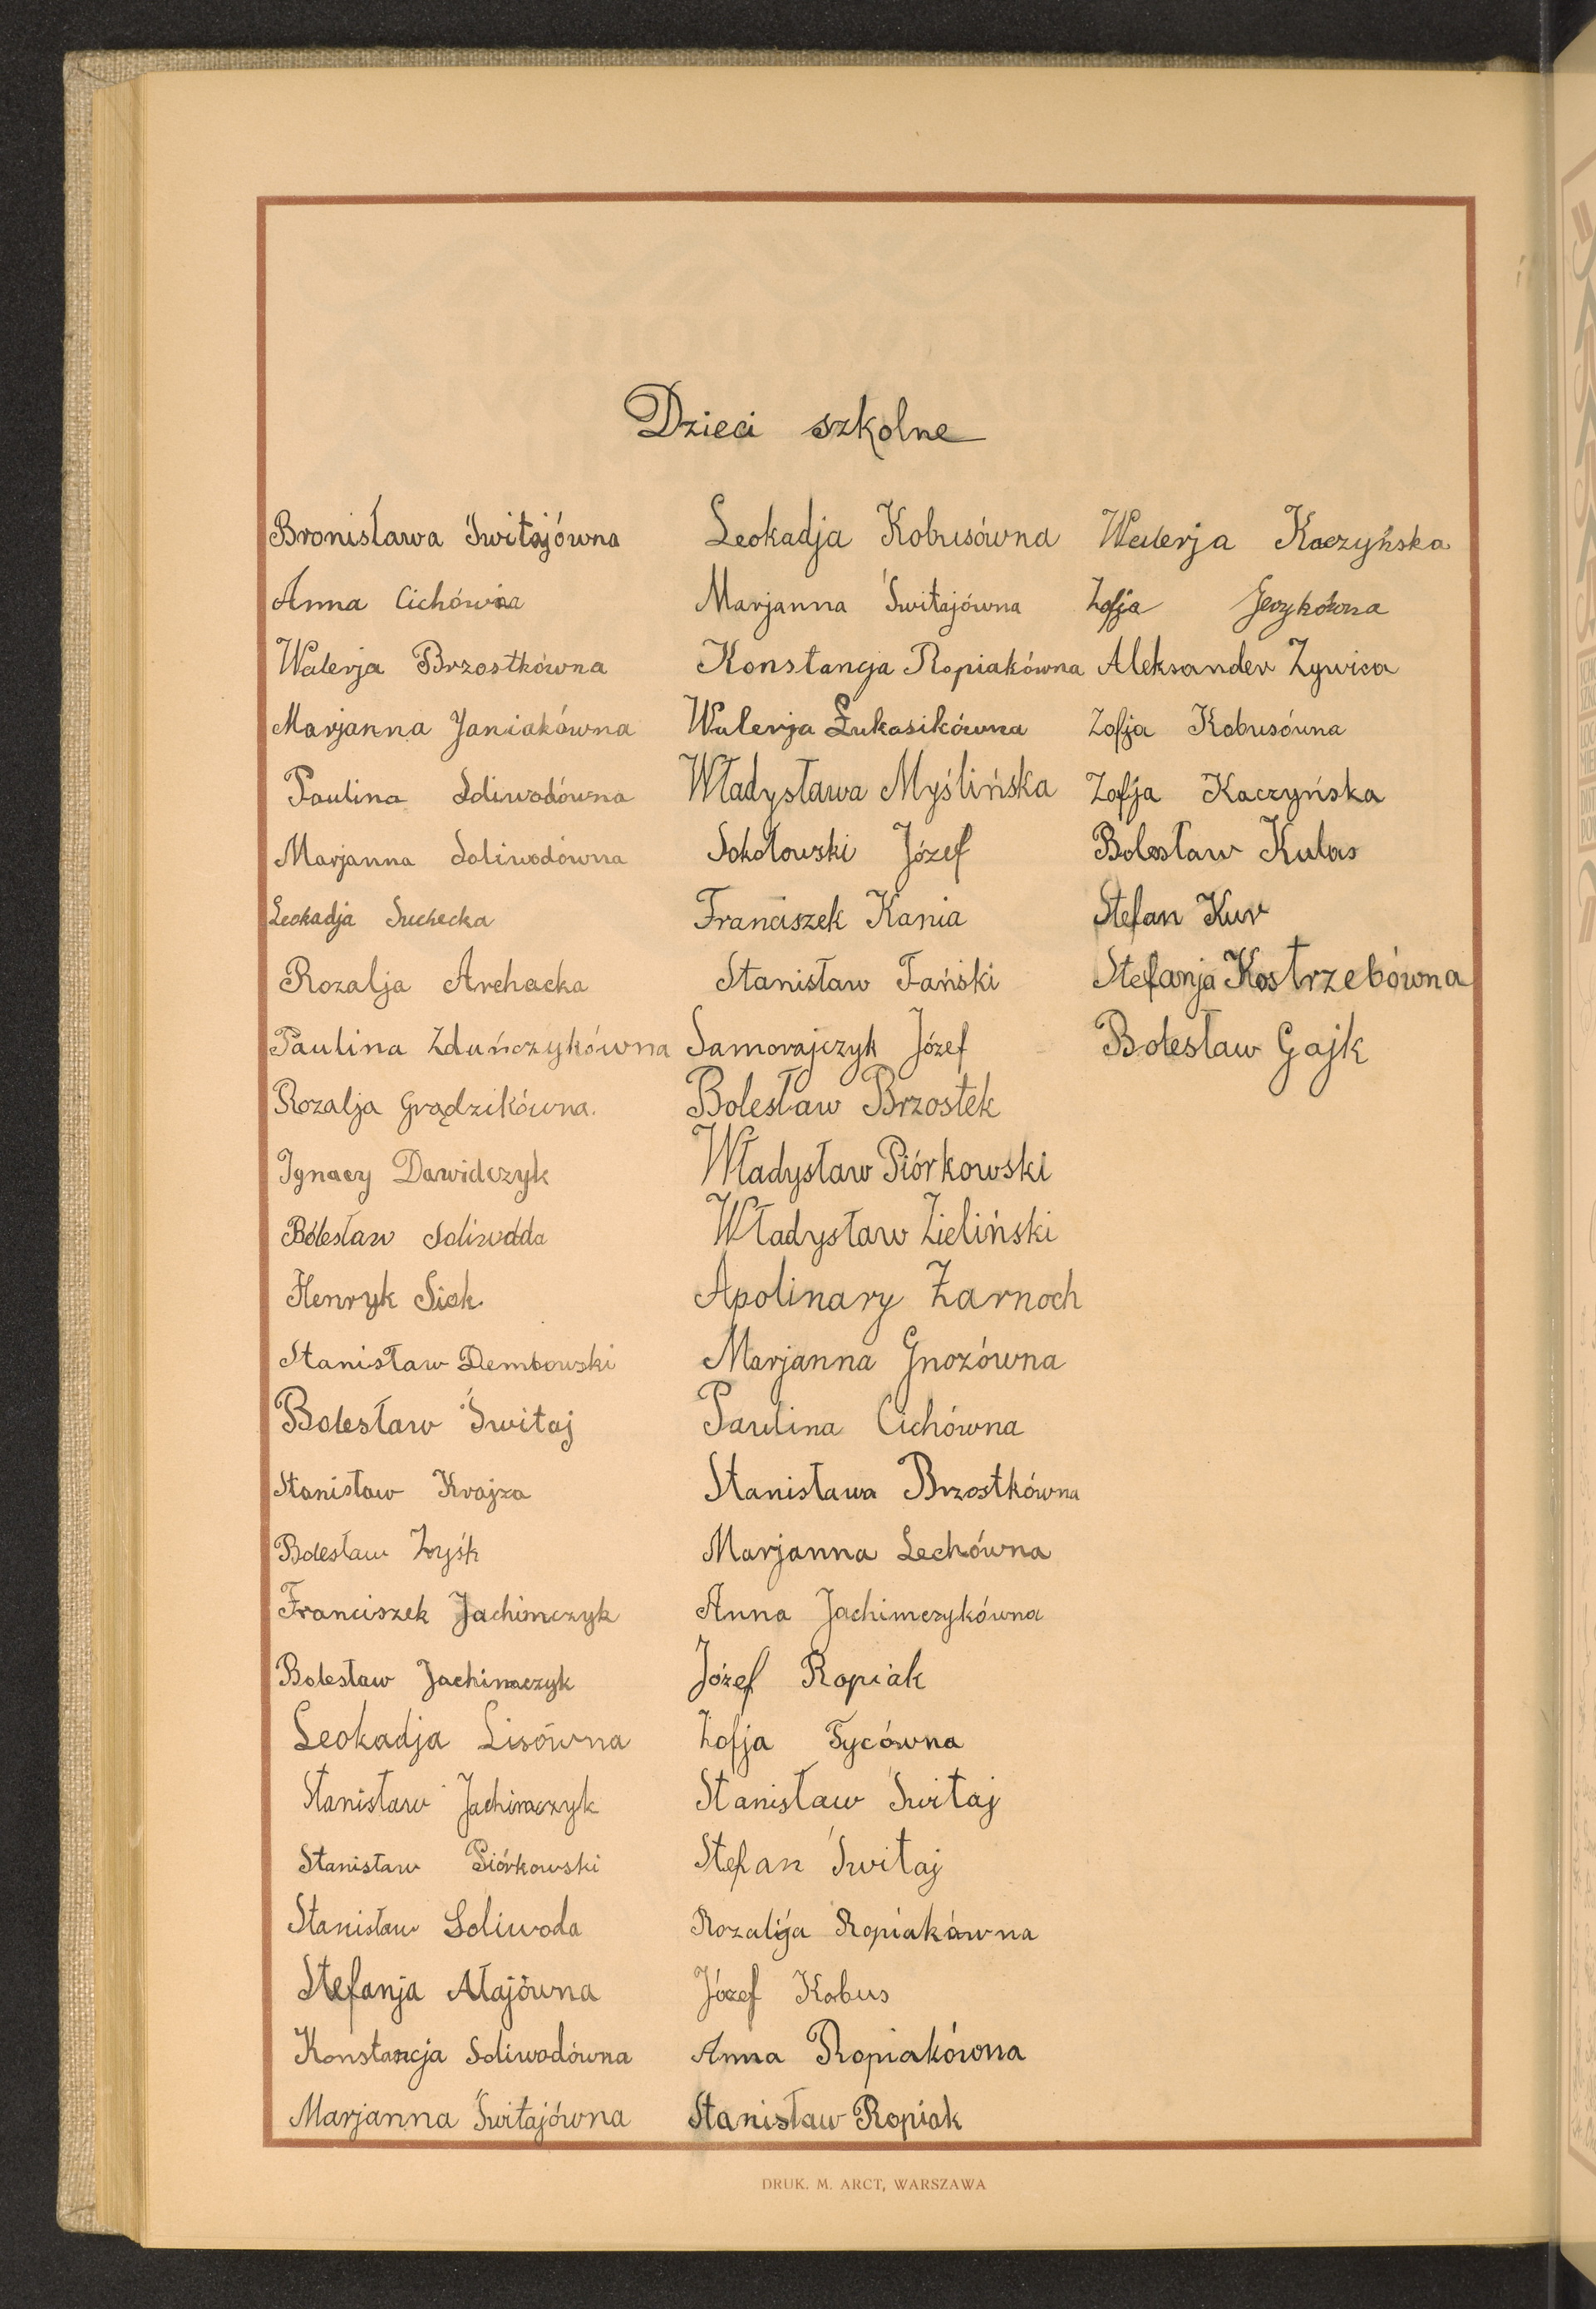 Dzieci szkolne
Bronisława Świtajówna
Anna Cichówna
Walerja Brzostkówna
Marjanna Janiakówna
Paulina Soliwodówna
Marjanna Soliwodówna
Leokadja Suchecka
Rozalja Archacka
Paulina Zduńczykówna
Rozalja Grądzikówna.
Ignacy Dawidczyk
Bolesław Soliwoda
Henryk Siok
Stanisław Dembowski
Bolesław Świtaj
Stanisław Krajza
Bolesław Zyśk
Franciszek Jachimczyk
Bolesław Jachimczyk
Leokadja Lisówna
Stanisław Jachimczyk
Stanisław Piórkowski
Stanisław Soliwoda
Stefanja Ałajówna
Konstancja Soliwodówna
Marjanna Świtajówna
Leokadja Kobusówna
Marjanna Świtajówna
Konstancja Ropiakówna
Walerja Łukasikówna
Władysława Myślińska
Sokołowski Józef
Franciszek Kania
Stanisław Fański
Samorajczyk Józef
Bolesław Brzostek
Władysław Piórkowski
Władysław Zieliński
Apolinary Żarnoch
Marjanna Gnozówna
Paulina Cichówna
Stanisława Brzostkówna
Marjanna Lechówna
Anna Jachimczykówna
Józef Ropiak
Zofja Tycówna
Stanisław Świtaj
Stefan Świtaj
Rozalja Ropiakówna
Józef Kobus
Anna Ropiakówna
Stanisław Ropiak
Walerja Kaczyńska
Zofja Jerzykówna
Aleksander Żywica
Zofja Kobusówna
Zofja Kaczyńska
Bolesław Kulas
Stefan Kur
Stefanja Kostrzebówna
Bolesław Gajk
DRUK. M. ARCT, WARSZAWA